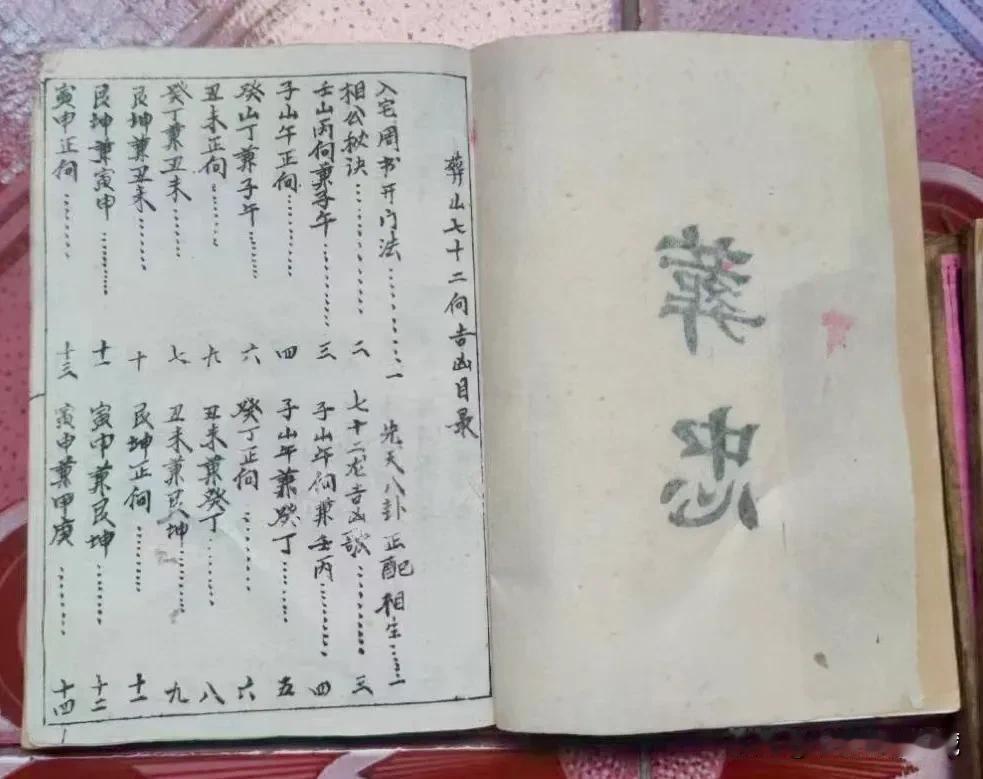 葬忠
葬山七十二向吉凶目录
入宅周书开门法……一 先天八卦正配相生……一
相公秘诀……二 七十二龙吉凶歌……三
壬山丙向兼子午……三 子山午向兼壬丙……四
子山午正向……四 子山午兼癸丁……五
癸山丁兼子午……六 癸丁正向……六
丑未正向…… 丑未兼癸丁……八
癸丁兼丑未……七 丑未兼艮坤……九
艮坤兼丑未……十 艮坤正向……十一
艮坤兼寅申……十一 寅申兼艮坤……十二
寅申正向……十三 寅申兼甲庚……十四